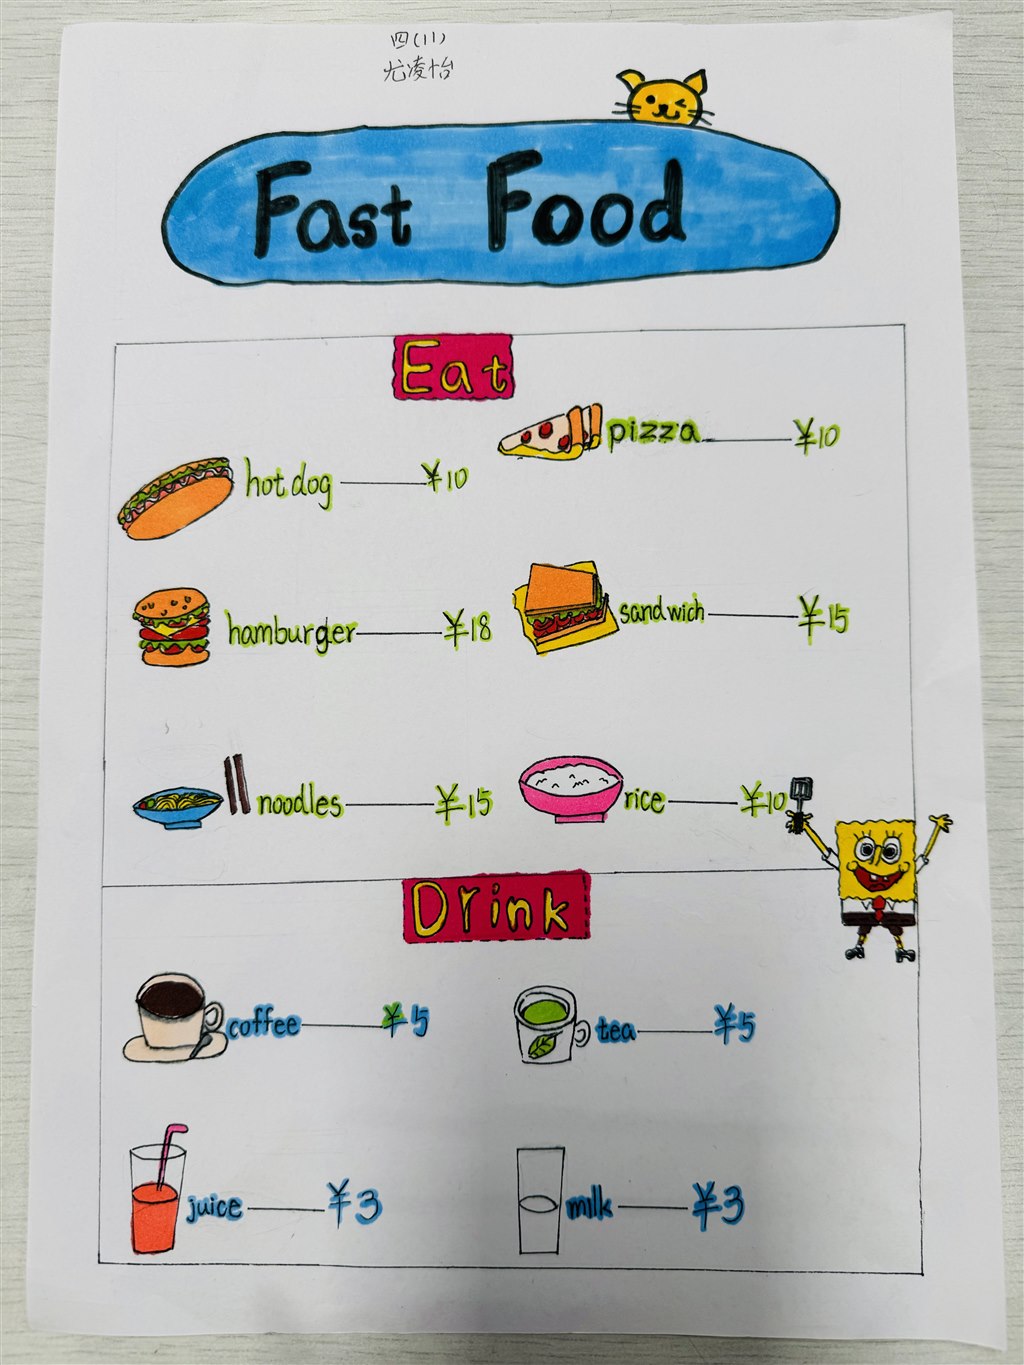 四(11)
尤凌怡
Fast Food
Eat
pizza ¥10
hot dog ¥10
hamburger ¥18
sandwich ¥15
noodles ¥15
rice ¥10
Drink
coffee ¥5
tea ¥5
juice ¥3
milk ¥3